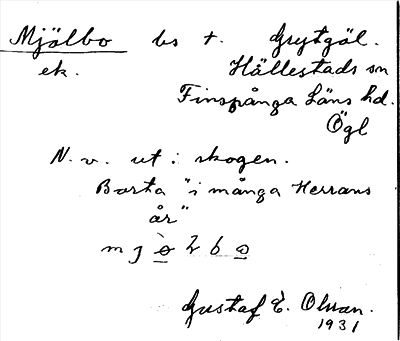 Mjölbo bs t. Grytgöl.
ek. Hällestads sn
Finspånga Läns hd.
Ögl
N.v. ut i skogen.
Borta "i många Herrans
år"
Gustaf E. Olsson.
1931